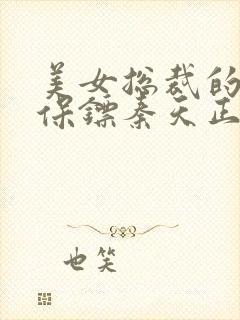 美女总裁的
保镖秦天正
也笑